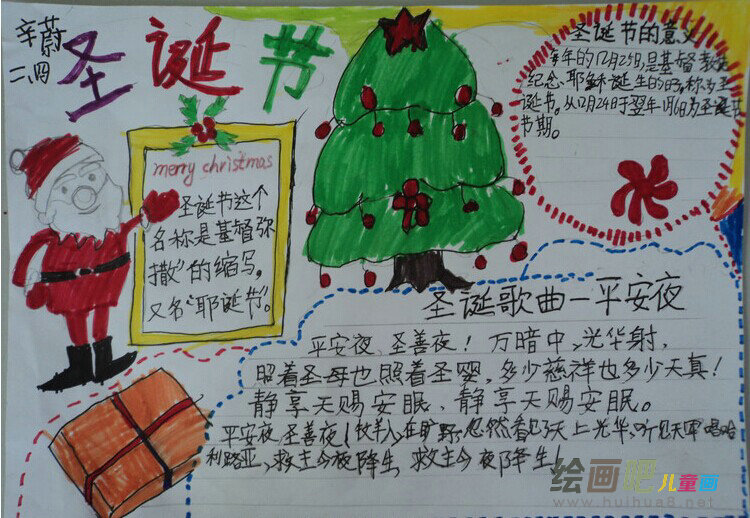 辛蔚
二、四
圣诞节
merry christmas
圣诞节这个
名称是基督弥
撒”的缩写，
又名“耶诞节”。
圣诞节的意义
年的12月25日，是基督教
纪念、耶稣诞生的日，称为圣
诞节，从12月24日于翌年1月6日为圣诞节
节期。
圣诞歌曲—平安夜
平安夜、圣善夜！万暗中，光华射，
照着圣母也照着圣婴，多少慈祥也多少天真！
静享天赐安眠、静享天赐安眠。
平安夜，圣善夜！牧羊人，在旷野，忽然看见天上光华，听见天军唱哈
利路亚，救主今夜降生 救主今夜降生！
绘画吧儿童画
www.huihua8.net